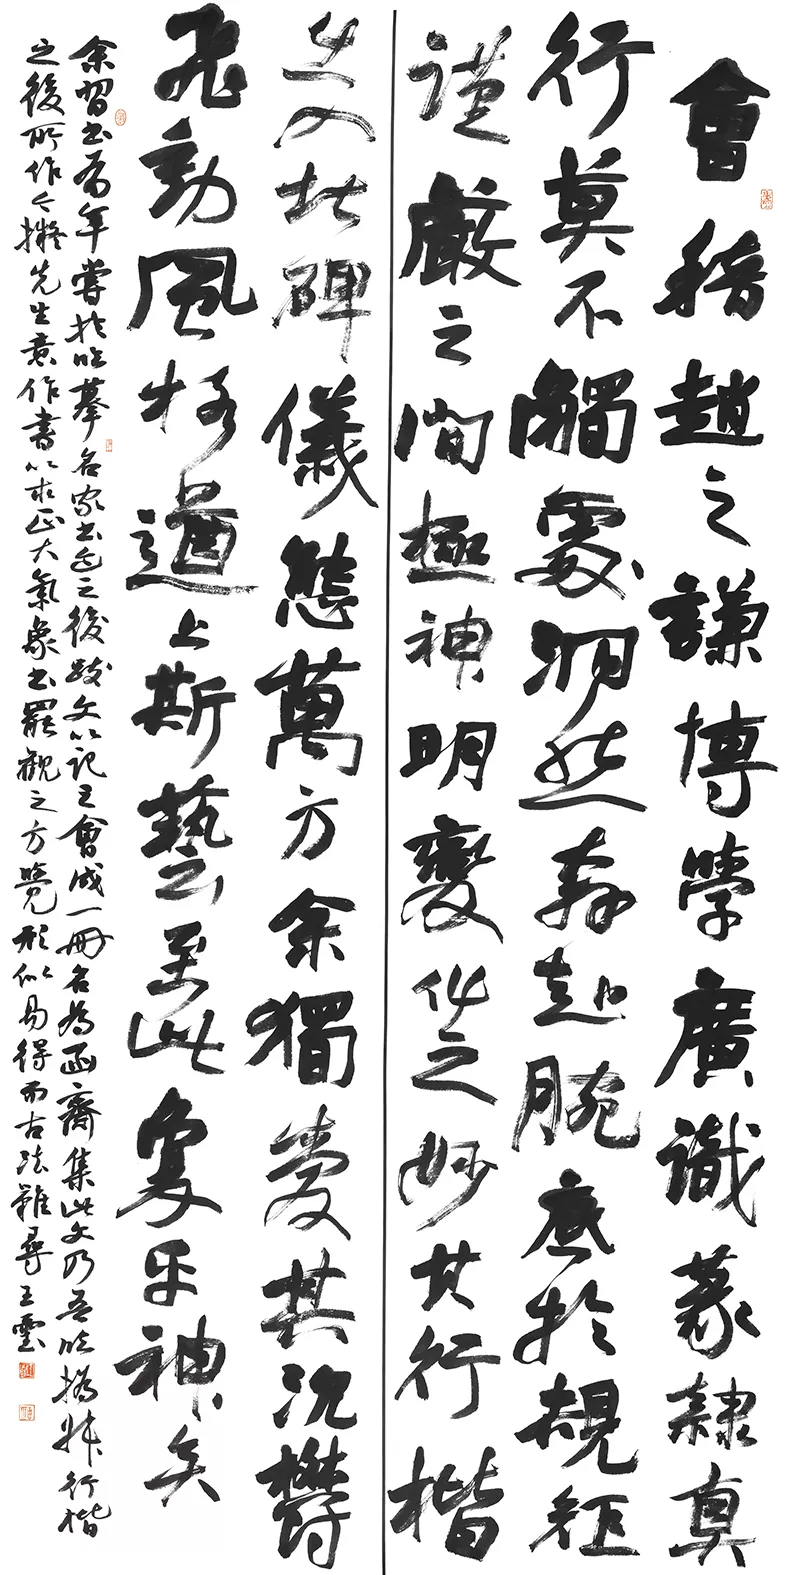 會稽趙之謙博學廣識篆隸真
行莫不觸處洞然奔赴腕底於規矩
謹嚴之間極神明變化之妙其行楷
入北碑儀態萬方余獨愛其沉鬱
飛動風格遒上斯藝至此乎神矣
余習書年嘗於臨摹名家書迹之後跋文以記之會成一冊名為函齋集此文乃吾臨撝叔行楷
之後所作今擬先生意作書以求正大氣象書罷觀之方覺形似易得而古法難尋王雲